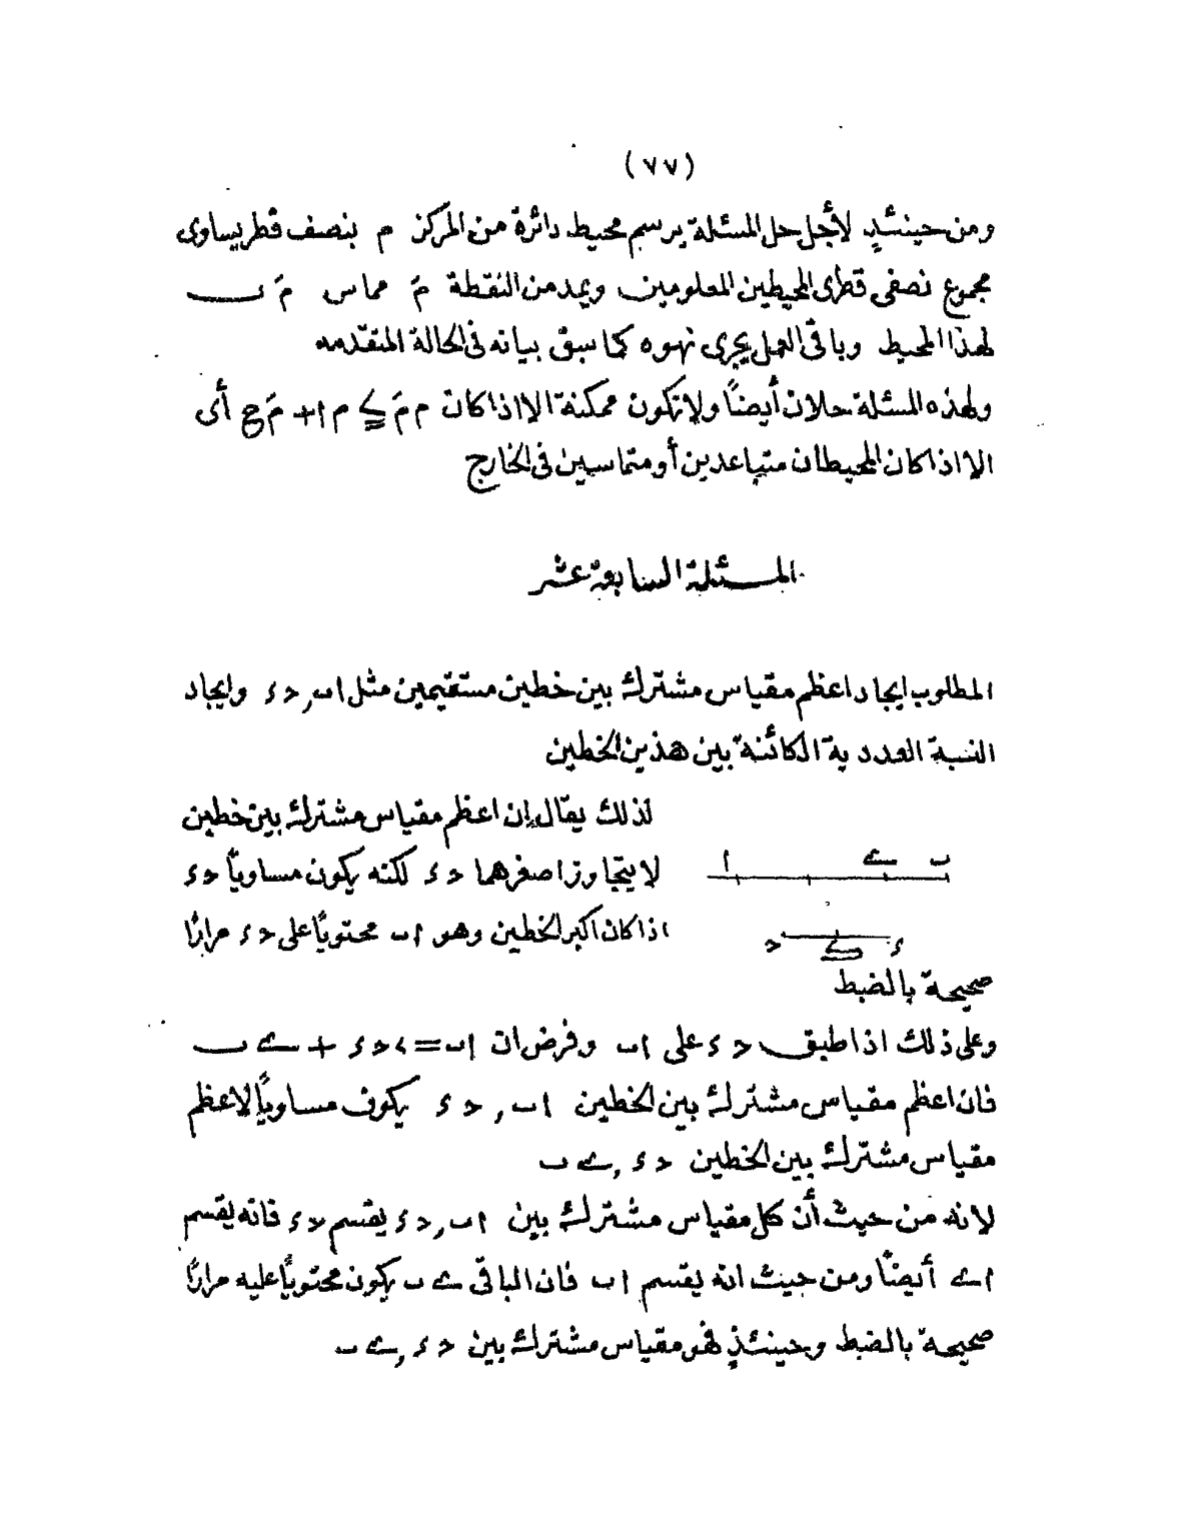 (٧٧)
ومن حينئذٍ لأجل حل المسئلة يرسم محيط دائرة من المركز م بنصف قطر يساوى
مجموع نصفى قطرى المحيطين المعلومين ويمد من النقطة مَ مماس مَ ب
لهذا المحيط وباقى العمل يجرى نهوه كما سبق بيانه فى الحالة المتقدمه
ولهذه المسئلة حلان أيضاً ولا تكون ممكنة الا اذا كان م مَ ≧ م ا + مَ ح أى
الا اذا كان المحيطان متباعدين أو متماسين فى الخارج
المسئلة السابعة عشر
المطلوب ايجاد اعظم مقياس مشترك بين خطين مستقيمين مثل اب , حء وايجاد
النسبة العددية الكائنة بين هذين الخطين
لذلك يقال إن اعظم مقياس مشترك بين خطين
لا يتجاوز اصغرهما حء لكنه يكون مساوياً حء
اذا كان اكبر الخطين وهو اب محتوياً على حء مراراً
ا ے ب
ح ے ء
صحيحة بالضبط
وعلى ذلك اذا طبق حء على اب وفرض ان اب = ٢حء + ے ب
فان اعظم مقياس مشترك بين الخطين اب , حء يكون مساوياً لاعظم
مقياس مشترك بين الخطين حء , ے ب
لانه من حيث أن كل مقياس مشترك بين اب , حء يقسم حء فانه يقسم
اے أيضاً ومن حيث انه يقسم اب فان الباقى ے ب يكون محتوياً عليه مراراً
صحيحة بالضبط وحينئذٍ فهو مقياس مشترك بين حء , ے ب